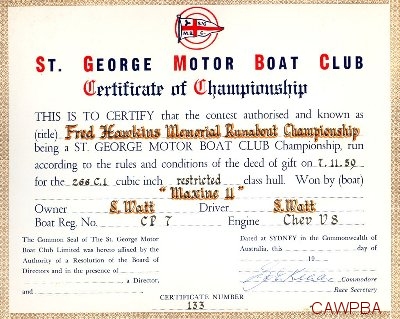 ST. GEORGE MOTOR BOAT CLUB
Certificate of Championship
THIS IS TO CERTIFY that the contest authorised and known as
(title) Fred Hawkins Memorial Runabout Championship
being a ST. GEORGE MOTOR BOAT CLUB Championship, run
according to the rules and conditions of the deed of gift on 7.11.59
for the 266 C.I. cubic inch restricted class hull. Won by (boat)
" Maxine II "
Owner S. Watt Driver S. Watt
Boat Reg. No. CP 7 Engine Chev V8
The Common Seal of The St. George Motor
Boat Club Limited was hereto affixed by the
Authority of a Resolution of the Board of
Directors and in the presence of
, a Director,
and
Dated at SYDNEY in the Commonwealth of
Australia, this day of
19
Commodore
Race Secretary
CERTIFICATE NUMBER
133
CAWPBA